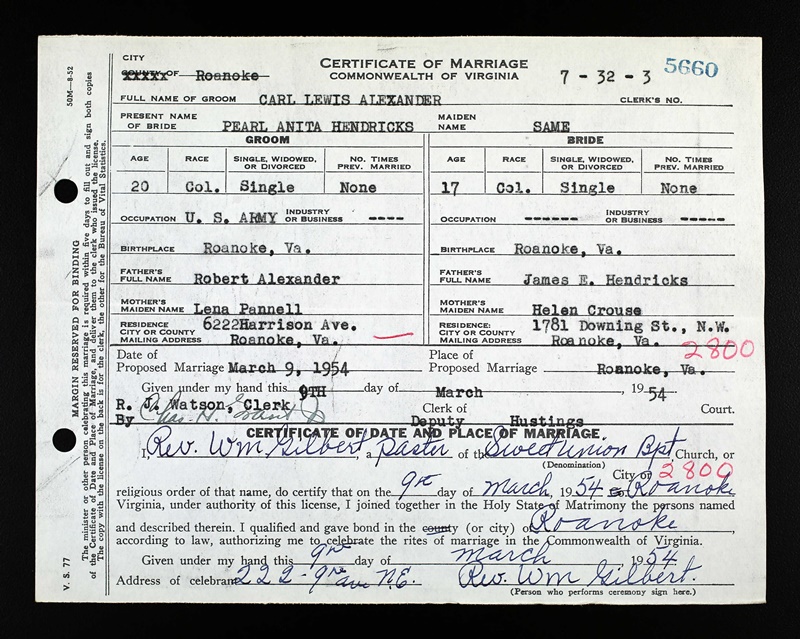 CITY
COUNTY OF Roanoke
CERTIFICATE OF MARRIAGE
COMMONWEALTH OF VIRGINIA
7 - 32 - 3
5660
FULL NAME OF GROOM CARL LEWIS ALEXANDER CLERK'S NO.
PRESENT NAME OF BRIDE PEARL ANITA HENDRICKS MAIDEN NAME SAME
GROOM BRIDE
AGE RACE SINGLE, WIDOWED, OR DIVORCED NO. TIMES PREV. MARRIED AGE RACE SINGLE, WIDOWED, OR DIVORCED NO. TIMES PREV. MARRIED
20 Col. Single None 17 Col. Single None
OCCUPATION U. S. ARMY INDUSTRY OR BUSINESS ---- OCCUPATION ------ INDUSTRY OR BUSINESS -----
BIRTHPLACE Roanoke, Va. BIRTHPLACE Roanoke, Va.
FATHER'S FULL NAME Robert Alexander FATHER'S FULL NAME James E. Hendricks
MOTHER'S MAIDEN NAME Lena Pannell MOTHER'S MAIDEN NAME Helen Crouse
RESIDENCE CITY OR COUNTY MAILING ADDRESS 6222Harrison Ave. Roanoke, Va. RESIDENCE: CITY OR COUNTY MAILING ADDRESS 1781 Downing St., N.W. Roanoke, Va.
2800
Date of Proposed Marriage March 9, 1954 Place of Proposed Marriage Roanoke, Va.
Given under my hand this 9TH day of March, 1954
R. J. Watson, Clerk Clerk of Court.
By Deputy Hustings
CERTIFICATE OF DATE AND PLACE OF MARRIAGE.
I, Rev. Wm Gilbert, a Pastor of the Sweet Union Bpt Church, or
(Denomination)
City or 2800
religious order of that name, do certify that on the 9th day of March, 1954 Roanoke
Virginia, under authority of this license, I joined together in the Holy State of Matrimony the persons named
and described therein. I qualified and gave bond in the county (or city) of Roanoke,
according to law, authorizing me to celebrate the rites of marriage in the Commonwealth of Virginia.
Given under my hand this 9th day of March 1954
Address of celebrant 222-9th ave N.E. Rev. Wm Gilbert.
(Person who performs ceremony sign here.)
V. S. 77 50M—8-52
MARGIN RESERVED FOR BINDING
The minister or other person celebrating this marriage is required within five days to fill out and sign both copies
of the Certificate of Date and Place of Marriage, and deliver them to the clerk who issued the license.
The copy with the license on the back is for the clerk, the other for the Bureau of Vital Statistics.